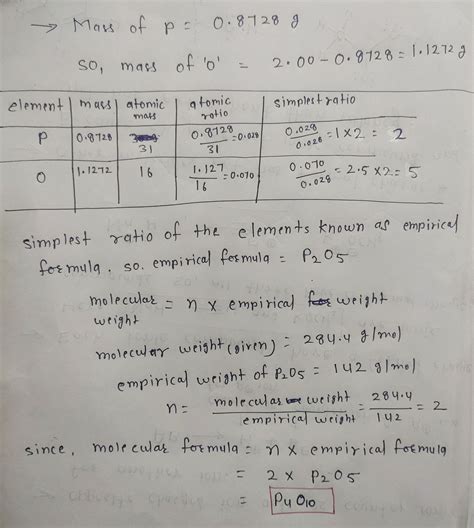 → Mass of P = 0.8728 g
so, mass of 'O' = 2.00 - 0.8728 = 1.1272 g
element | mass | atomic mass | atomic ratio | simplest ratio
P | 0.8728 | 31 | 0.8728/31 = 0.028 | 0.028/0.028 = 1 x 2 = 2
O | 1.1272 | 16 | 1.127/16 = 0.070 | 0.070/0.028 = 2.5 x 2 = 5
simplest ratio of the elements known as empirical
formula. so. empirical formula = P2O5
molecular weight = n x empirical weight
molecular weight (given) = 284.4 g/mol
empirical weight of P2O5 = 142 g/mol
n = molecular weight/empirical weight = 284.4/142 = 2
since, molecular formula = n x empirical formula
= 2 x P2O5
= P4O10